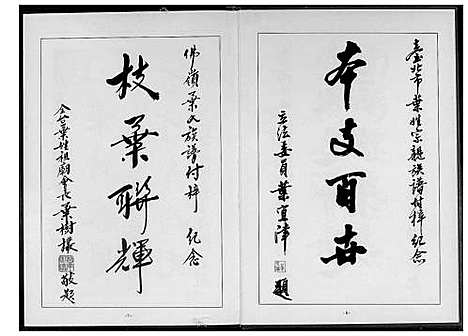 臺北市葉姓宗親族譜付梓紀念
本支百世
立法委員葉宜津
題
佛嶺葉氏族譜付梓 紀念
枝葉聯輝
全世葉姓祖廟會長葉樹
敬題